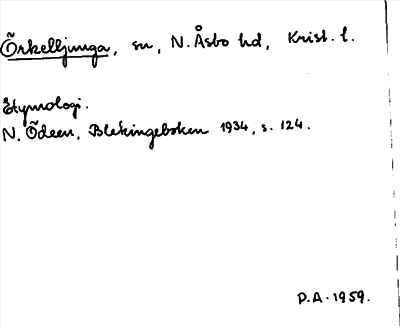 Örkelljunga, sn, N. Åsbo hd, Krist. l.
Etymologi.
N. Ödeen, Blekingeboken 1934, s. 124.
P.A. 1959.